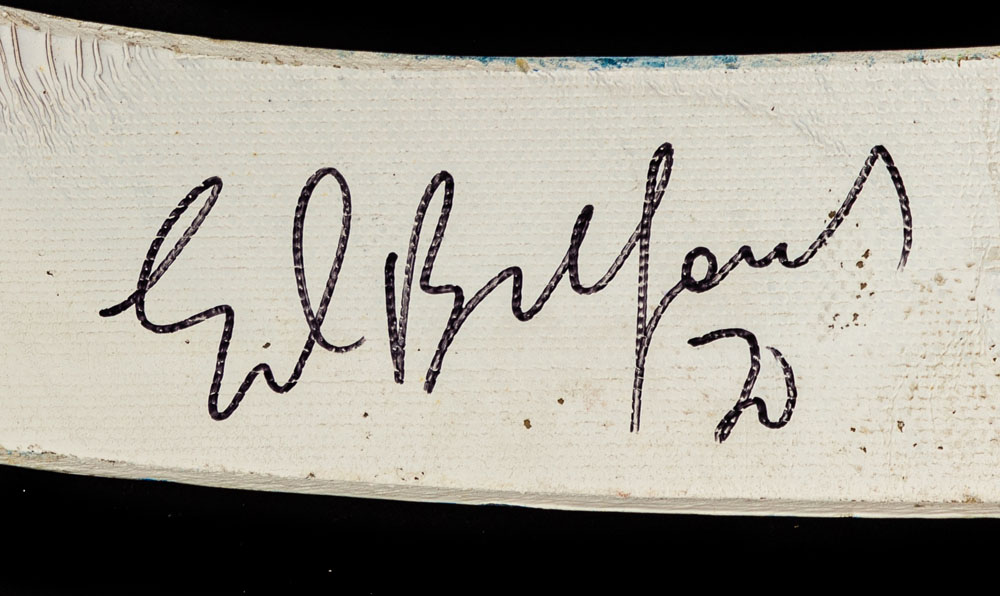 Ed Belfour
20